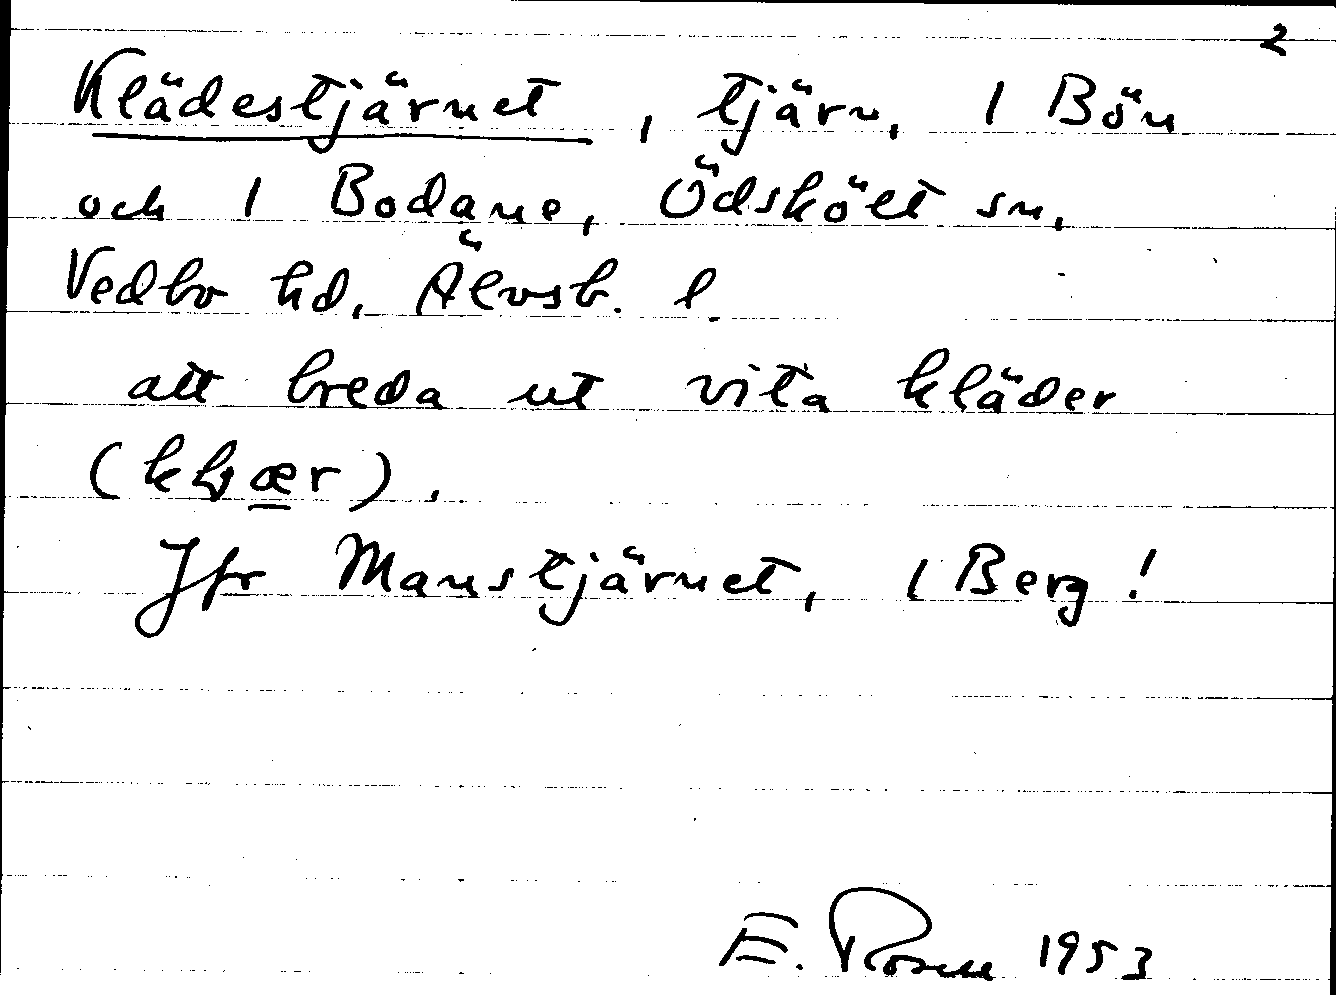 2
Klädestjärnet, tjärn, 1 Bön
och 1 Bodane, Ödskölt sn,
Vedbo hd, Älvsb. l.
att breda ut vita kläder
Jfr Manstjärnet, 1 Berg!
E. Rosen 1953